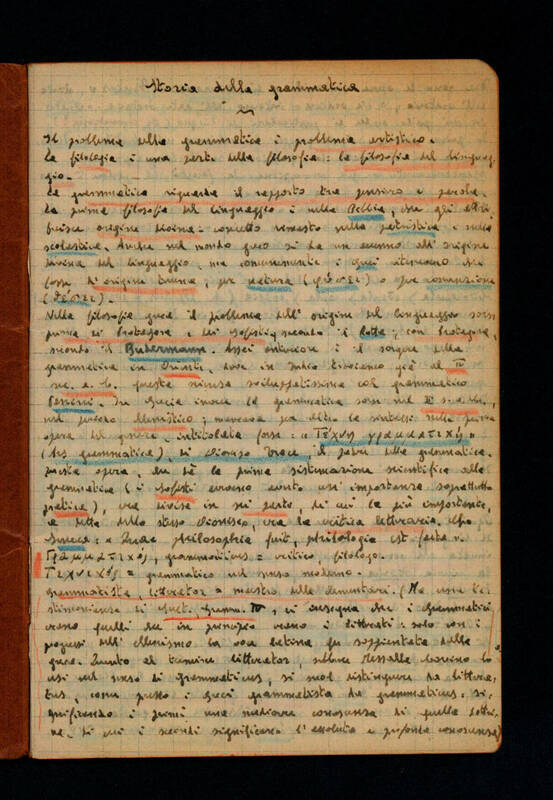 Storia della grammatica
Il problema della grammatica è problema artistico.
La filologia è una parte della filosofia: la filosofia del linguag-
gio.
La grammatica riguarda il rapporto tra pensiero e parola.
La prima filosofia del linguaggio è nella Bibbia, che gli attri-
buisce origine divina: concetto rimasto nella patristica e nella
scolastica. Anche nel mondo greco si ha un accenno all'origine
divina del linguaggio, ma comunemente i Greci ritenevano che
fosse d'origine umana, per natura (φύσει) o per convenzione
(θέσει).
Nella filosofia greca il problema dell'origine del linguaggio sorse
prima di Protagora e dei sofisti, secondo il Rotta; con Protagora,
secondo il Budermann. Assai anteriore è il sorgere della
grammatica in Oriente, dove in India troviamo già al IV
sec. a. C. questa scienza sviluppatissima col grammatico
Pānini. In Grecia invece la grammatica sorse nel II s. a. C.,
nel periodo ellenistico; mancava la sintesi nella prima
opera del genere, intitolata forse: "Τέχνη γραμματική"
(Ars grammatica), di Dionisio Trace, il padre della grammatica.
Questa opera, che dà la prima sistemazione scientifica alla
grammatica (i sofisti avevano avuto un'importanza soprattutto
pratica), era divisa in sei parti, di cui la più importante,
a detta dello stesso Dionisio, era la critica letteraria.
Seneca: "Quae philosophia fuit, philologia est facta".
Γραμματικός, grammaticus = critico, filologo.
Τεχνικός = grammatico nel senso moderno.
Grammatista, litterator = maestro delle elementari. (Ma una te-
stimonianza di Suet., Gramm. IV, ci insegna che i grammatici
erano quelli che in principio erano i litterati: solo con i
progressi dell'ellenismo la voce latina fu soppiantata dalla
greca. Quanto al termine litterator, sebbene Messalla Corvino lo
usi nel senso di grammaticus, si suol distinguere da littera-
tus, come presso i Greci grammatista da grammaticus: si-
gnificando i primi una mediocre conoscenza di quella dottri-
na, di cui i secondi significano l'assoluta e profonta conoscenza)